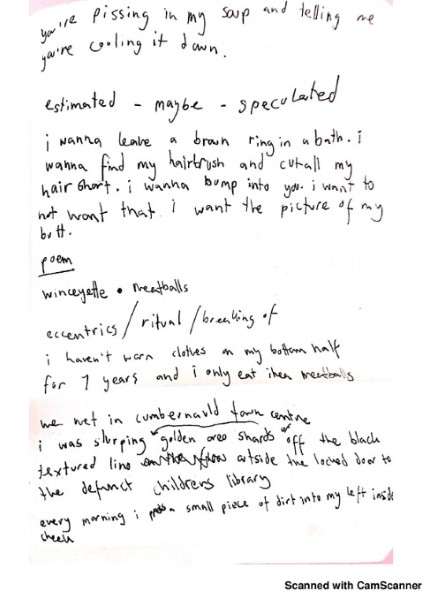 you're pissing in my soup and telling me
you're cooling it down.
estimated - maybe - speculated
i wanna leave a brown ring in a bath. i
wanna find my hairbrush and cut all my
hair short. i wanna bump into you. i want to
not want that. i want the picture of my
butt.
poem
winceyette • meatballs
eccentrics / ritual / breaking of
i haven't worn clothes on my bottom half
for 7 years and i only eat ikea meatballs
we met in cumbernauld town centre
i was slurping golden oreo shards off the black
textured lino outside the locked door to
the defunct childrens library
every morning i a small piece of dirt into my left inside
cheek
Scanned with CamScanner